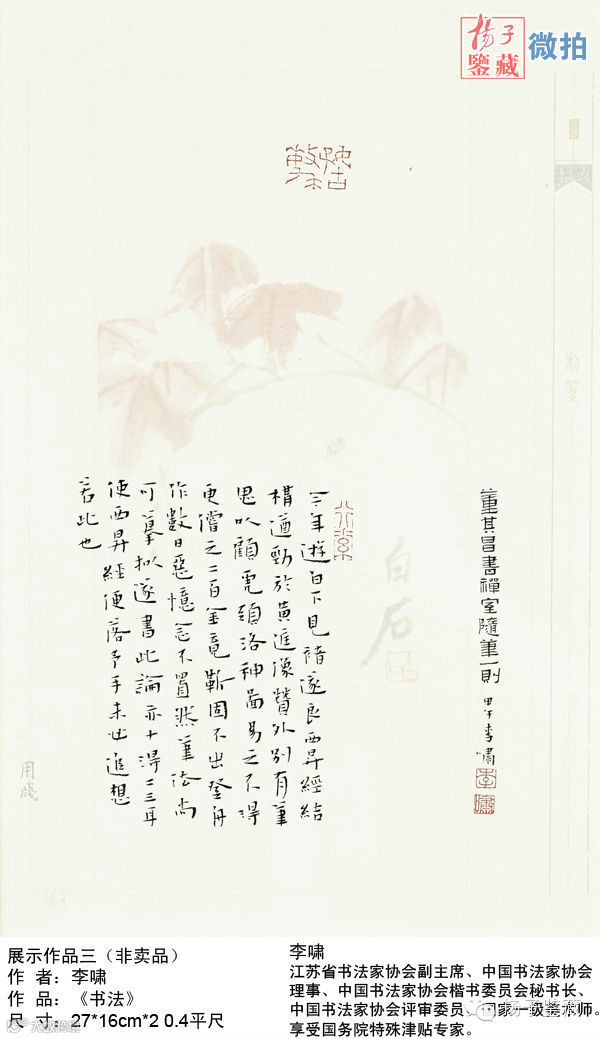 楊子
鑒藏
微拍
董其昌書禪室隨筆一則 甲午李嘯
李嘯
三年遊白下見褚遂良西昇經結
構遒勁於黄庭像贊外别有筆
思以顧虎頭洛神圖易之不得
更償之二百金竟靳固不出登舟
作數日惡憶念不置然筆法尚
可摹拟遂書此論亦十得二三耳
使西昇經便落予手未必追想
若此也
白石
用牋
展示作品三（非卖品）
作 者：李啸
作 品：《书法》
尺 寸：27*16cm*2 0.4平尺
李啸
江苏省书法家协会副主席、中国书法家协会
理事、中国书法家协会楷书委员会秘书长、
中国书法家协会评审委员、国家一级美术师。
享受国务院特殊津贴专家。